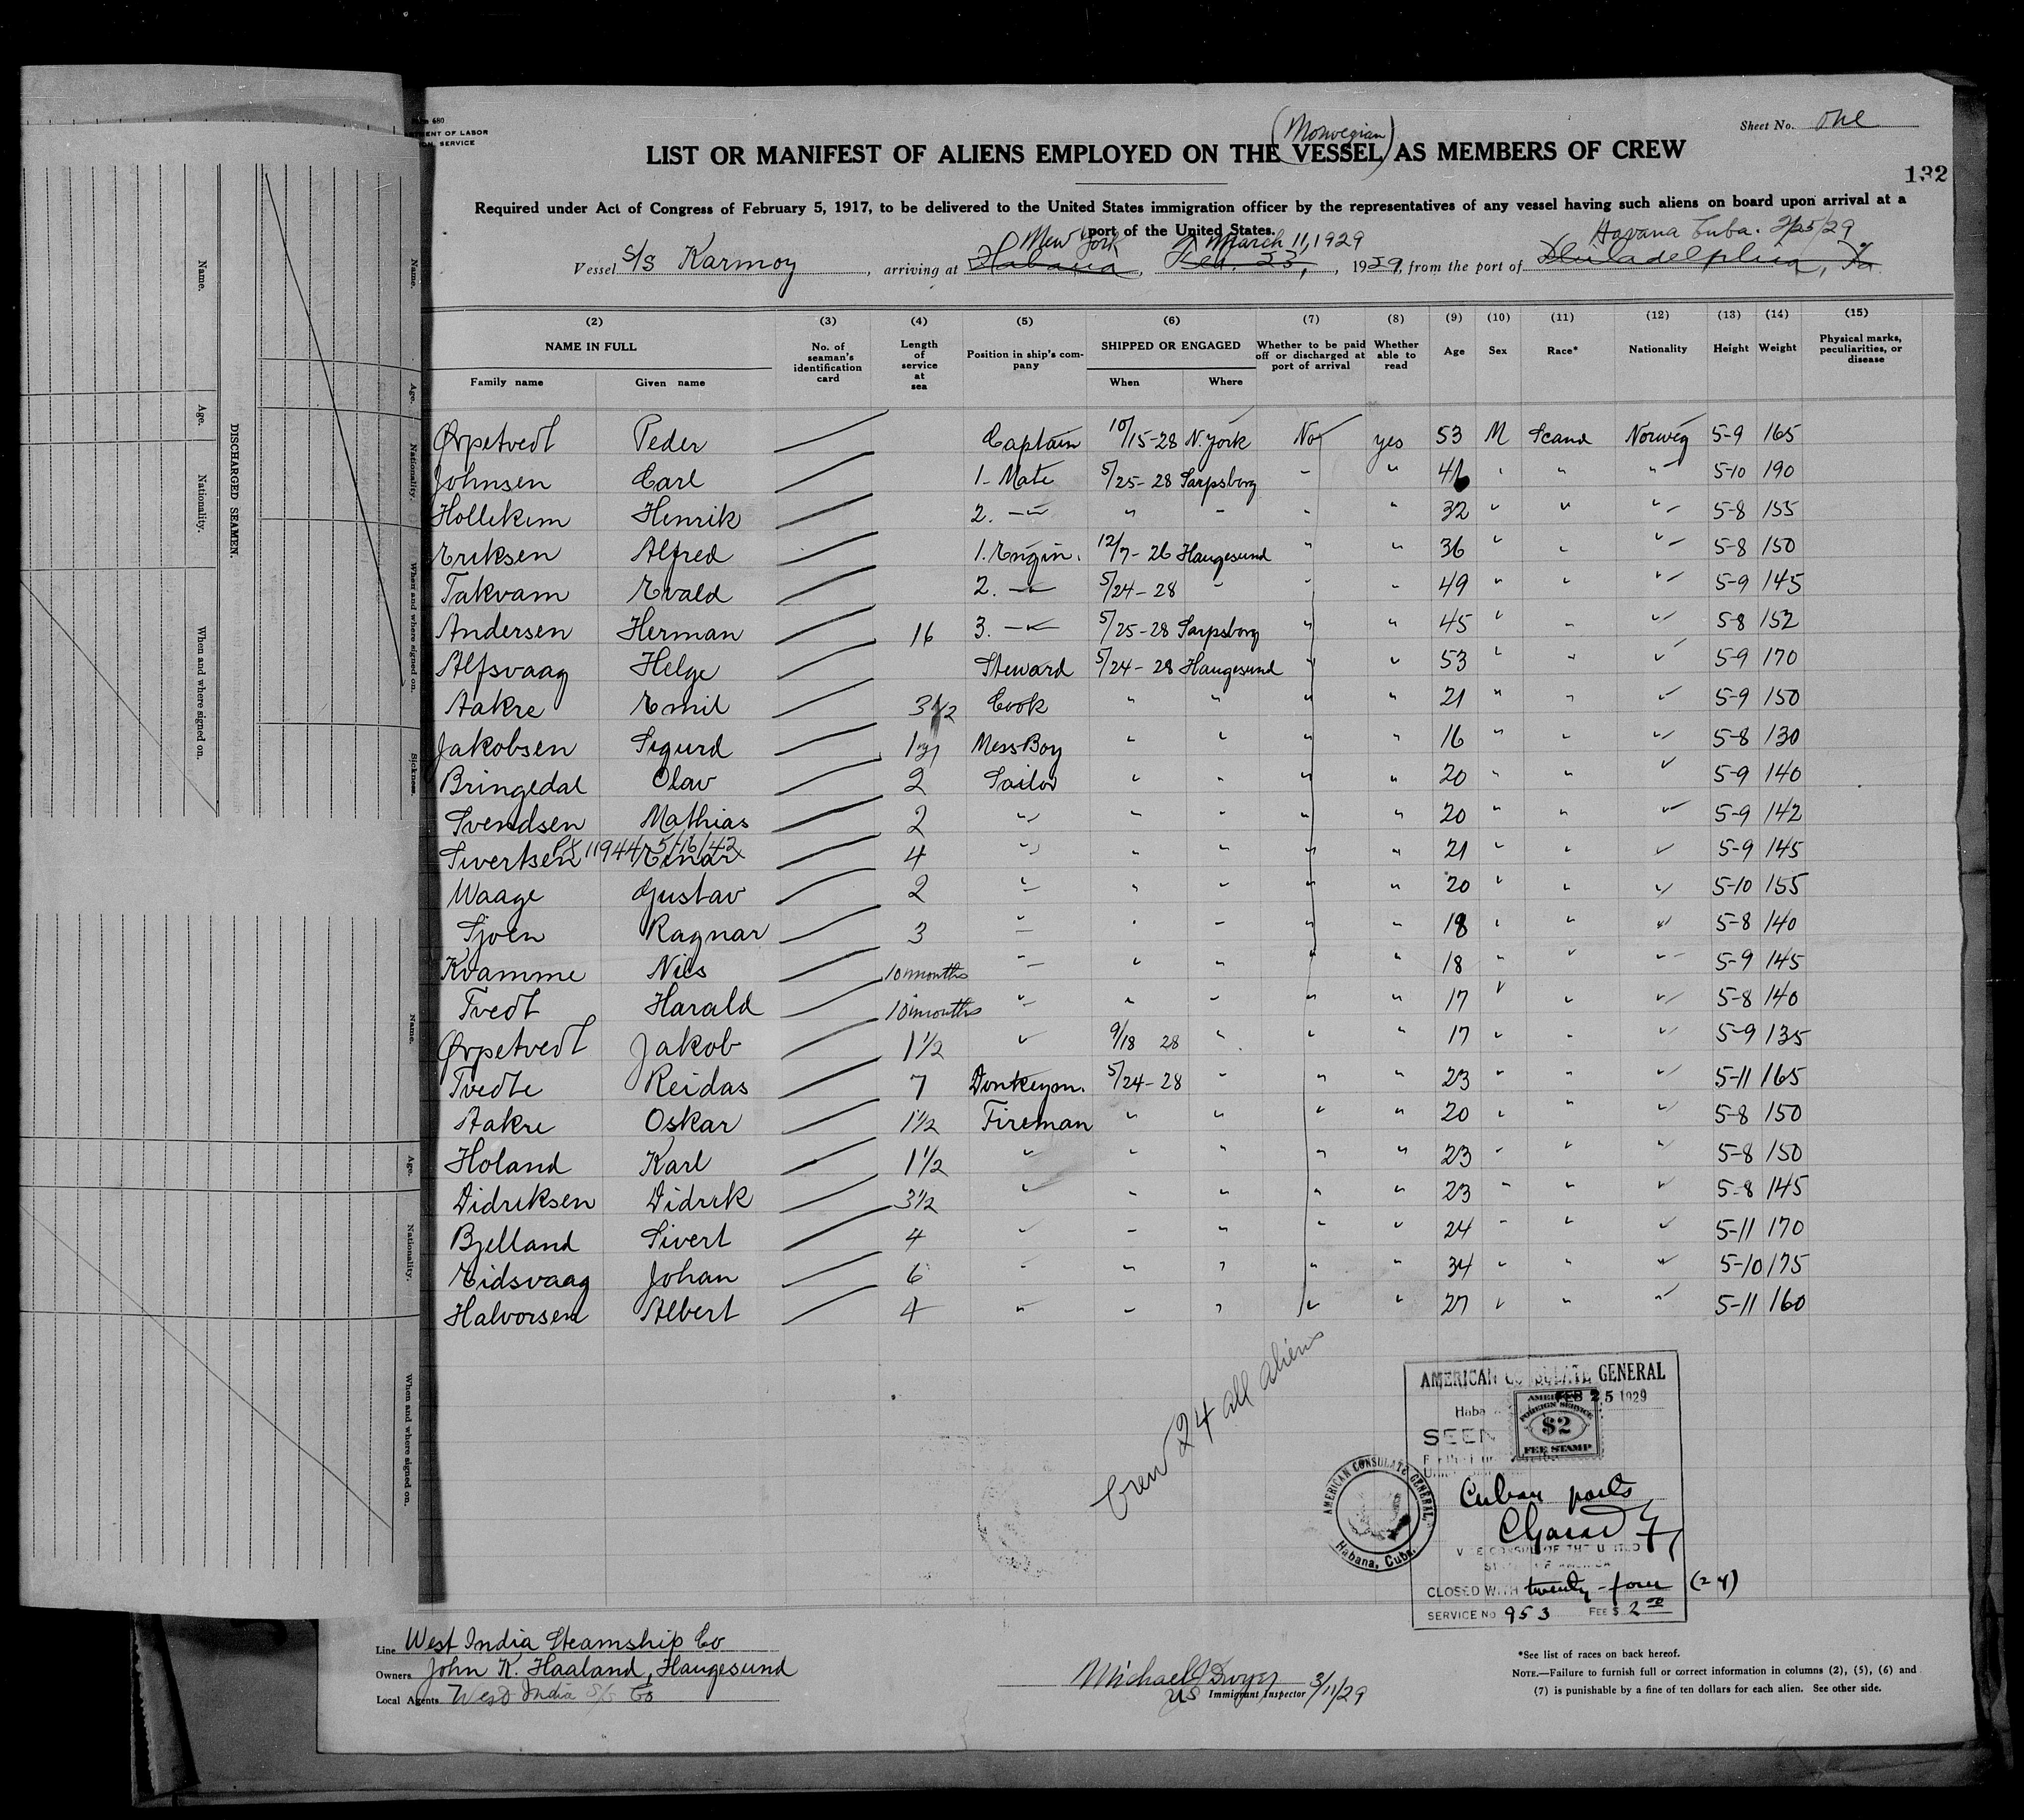 Form 680
DEPARTMENT OF LABOR
SERVICE
Sheet No. One
(Norwegian)
LIST OR MANIFEST OF ALIENS EMPLOYED ON THE VESSEL AS MEMBERS OF CREW
132
Required under Act of Congress of February 5, 1917, to be delivered to the United States immigration officer by the representatives of any vessel having such aliens on board upon arrival at a
port of the United States.
New York March 11, 1929 Havana Cuba. 2/25/29
Vessel S/S Karmoy, arriving at Habana, Feb. 23, 1929, from the port of Philadelphia, Pa.
(2) (3) (4) (5) (6) (7) (8) (9) (10) (11) (12) (13) (14) (15)
NAME IN FULL No. of seaman's identification card Length of service at sea Position in ship's company SHIPPED OR ENGAGED Whether to be paid off or discharged at port of arrival Whether able to read Age Sex Race* Nationality Height Weight Physical marks, peculiarities, or disease
Family name Given name When Where
Ørpetvedt Peder Captain 10/15-28 N. York No yes 53 M Scand Norweg 5-9 165
Johnsen Carl 1- Mate 5/25-28 Sarpsborg - " 46 " " " 5-10 190
Hollekim Henrik 2. -"- " " " " 32 " " " 5-8 155
Eriksen Alfred 1. Engin. 12/7-26 Haugesund " " 36 " " " 5-8 150
Takvam Evald 2. -"- 5/24-28 " " " 49 " " " 5-9 145
Andersen Herman 16 3. -"- 5/25-28 Sarpsborg " " 45 " " " 5-8 152
Alfsvaag Helge Steward 5/24-28 Haugesund " " 53 " " " 5-9 170
Aakre Emil 3 1/2 Cook " " " " 21 " " " 5-9 150
Jakobsen Sigurd 1 Mess-Boy " " " " 16 " " " 5-8 130
Bringedal Olav 2 Sailor " " " " 20 " " " 5-9 140
Svendsen Mathias 2 " " " " " 20 " " " 5-9 142
11944 5/16/42
Sivertsen Einar 4 " " " " " 21 " " " 5-9 145
Waage Gustav 2 " " " " " 20 " " " 5-10 155
Sjoen Ragnar 3 " " " " " 18 " " " 5-8 140
Kvamme Nils 10 months " " " " " 18 " " " 5-9 145
Tvedt Harald 10 months " " " " " 17 " " " 5-8 140
Ørpetvedt Jakob 1 1/2 " 9/18 28 " " " 17 " " " 5-9 135
Tvedte Reidar 7 Donkeym. 5/24-28 " " " 23 " " " 5-11 165
Aakre Oskar 1 1/2 Fireman " " " " 20 " " " 5-8 150
Holand Karl 1 1/2 " " " " " 23 " " " 5-8 150
Didriksen Didrik 3 1/2 " " " " " 23 " " " 5-8 145
Bjelland Sivert 4 " " " " " 24 " " " 5-11 170
Eidsvaag Johan 6 " " " " " 34 " " " 5-10 175
Halvorsen Albert 4 " " " " " 27 " " " 5-11 160
Crew 24 all aliens
AMERICAN CONSULATE GENERAL
FEB 25 1929
Haba
SEEN
AMERICAN FOREIGN SERVICE $2 FEE STAMP
Cuban ports
VICE CONSUL OF THE UNITED
STATES OF AMERICA
CLOSED WITH twenty-four (24)
SERVICE No 953 FEE $ 2.00
AMERICAN CONSULATE GENERAL, Habana, Cuba.
Line West India Steamship Co
Owners John K. Haaland, Haugesund
Local Agents West India S/S Co
Michael J Dwyer 3/11/29
US Immigrant Inspector
*See list of races on back hereof.
NOTE.—Failure to furnish full or correct information in columns (2), (5), (6) and
(7) is punishable by a fine of ten dollars for each alien. See other side.
DISCHARGED SEAMEN.
Name. Age. Nationality. When and where signed on.
Name. Age. Nationality. When and where signed on. Sickness.
Name. Age. Nationality. When and where signed on.